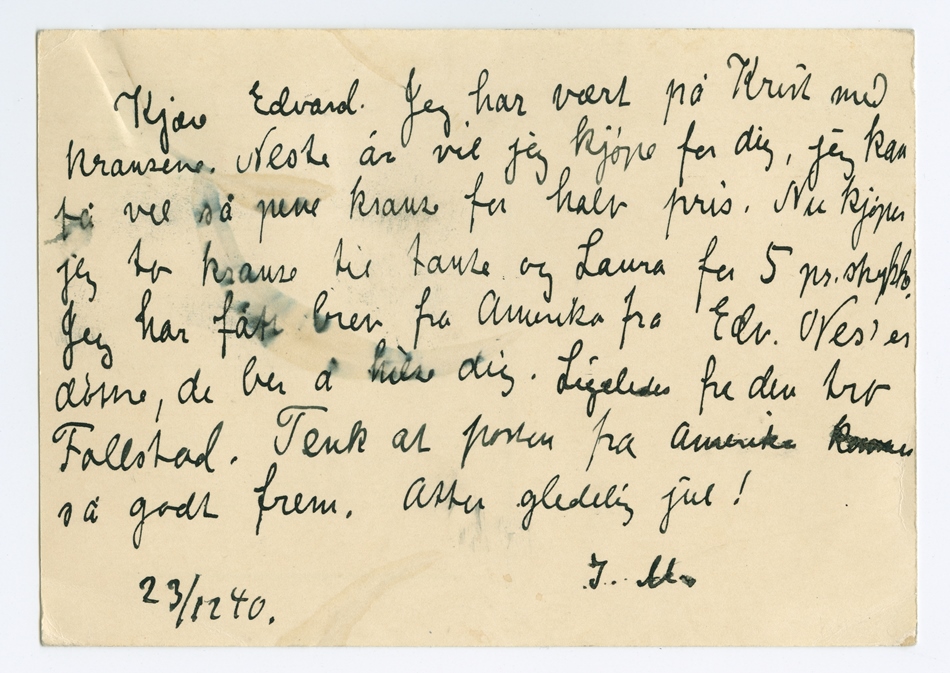 Kjære Edvard. Jeg har vært på Krist med
kransene. Neste år vil jeg kjøpe for dig, jeg kan
få vel så pene kranse for halv pris. Nu kjøper
jeg to kranse til tante og Laura for 5 pr. stykke.
Jeg har fått brev fra Amerika fra Edv. Nes'es
døtre, de ber å hilse dig. Ligeledes fra den
Follestad. Tenk at posten fra Amerika kommer
så godt frem. Atter gledelig jul!
23/12 40.